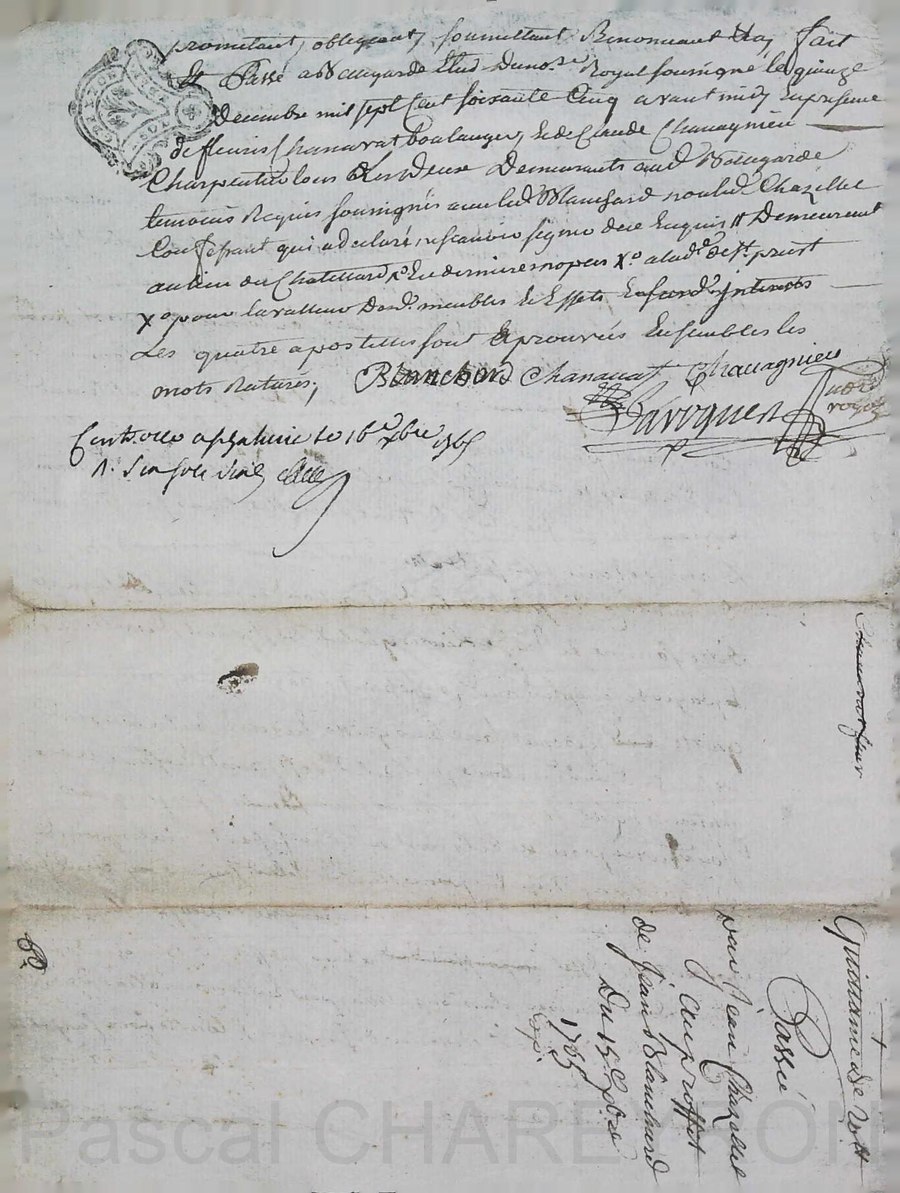 prometant, obligeant, soumettant Renonceant &ay fait
Et Passé a Estude du no.re Royal soussigne le quinze
Decembre mil sept Cent soixante Cinq avant midy En presence
de fleuris Chanavat boulanger, & de Claude Chavagnieu
Charpentier tous Les Deux Demeurants aud
temoins Requis soussignés avec led Blanchard non led Chazellet
Confessant qui a declaré ne scavoir signer de ce Enquis # Demeurent
au lieu du Chatellard x.o a lad.e de St. priest
x.o pour la valleur desd. meubles & Effets
Les quatre apostilles sont Eprouvées Ensembles les
mots Raturés,
Blanchard Chanavat Chavagnieu
not.re royal
le 16.e xbre 1765
Chanavat
Quittance de
Passée
par Jean Chazellet
au proffit
de Jean Blanchard
Du 15 Xb.re
1765
Exp.
Pascal CHAREYRON